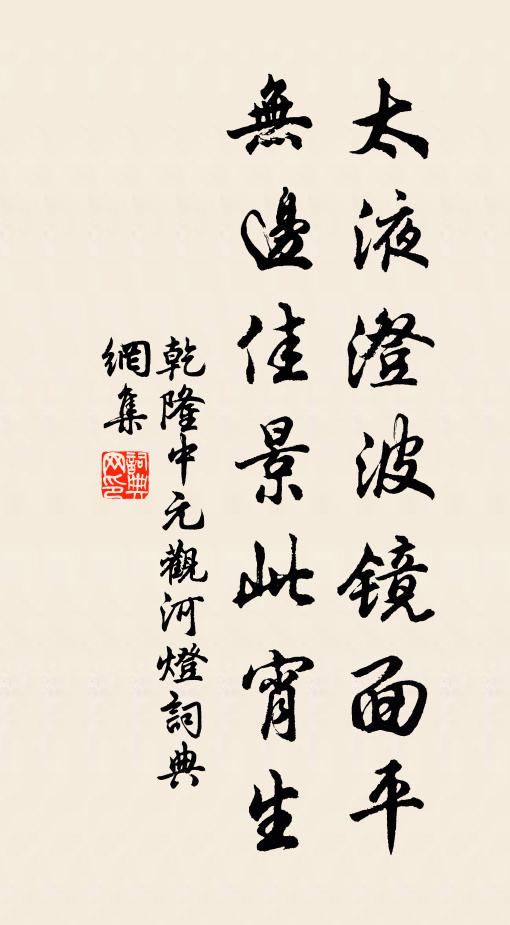 太液澄波镜面平
無邊佳景此宵生
乾隆中元觀河燈詞典
網集
詞典
网印